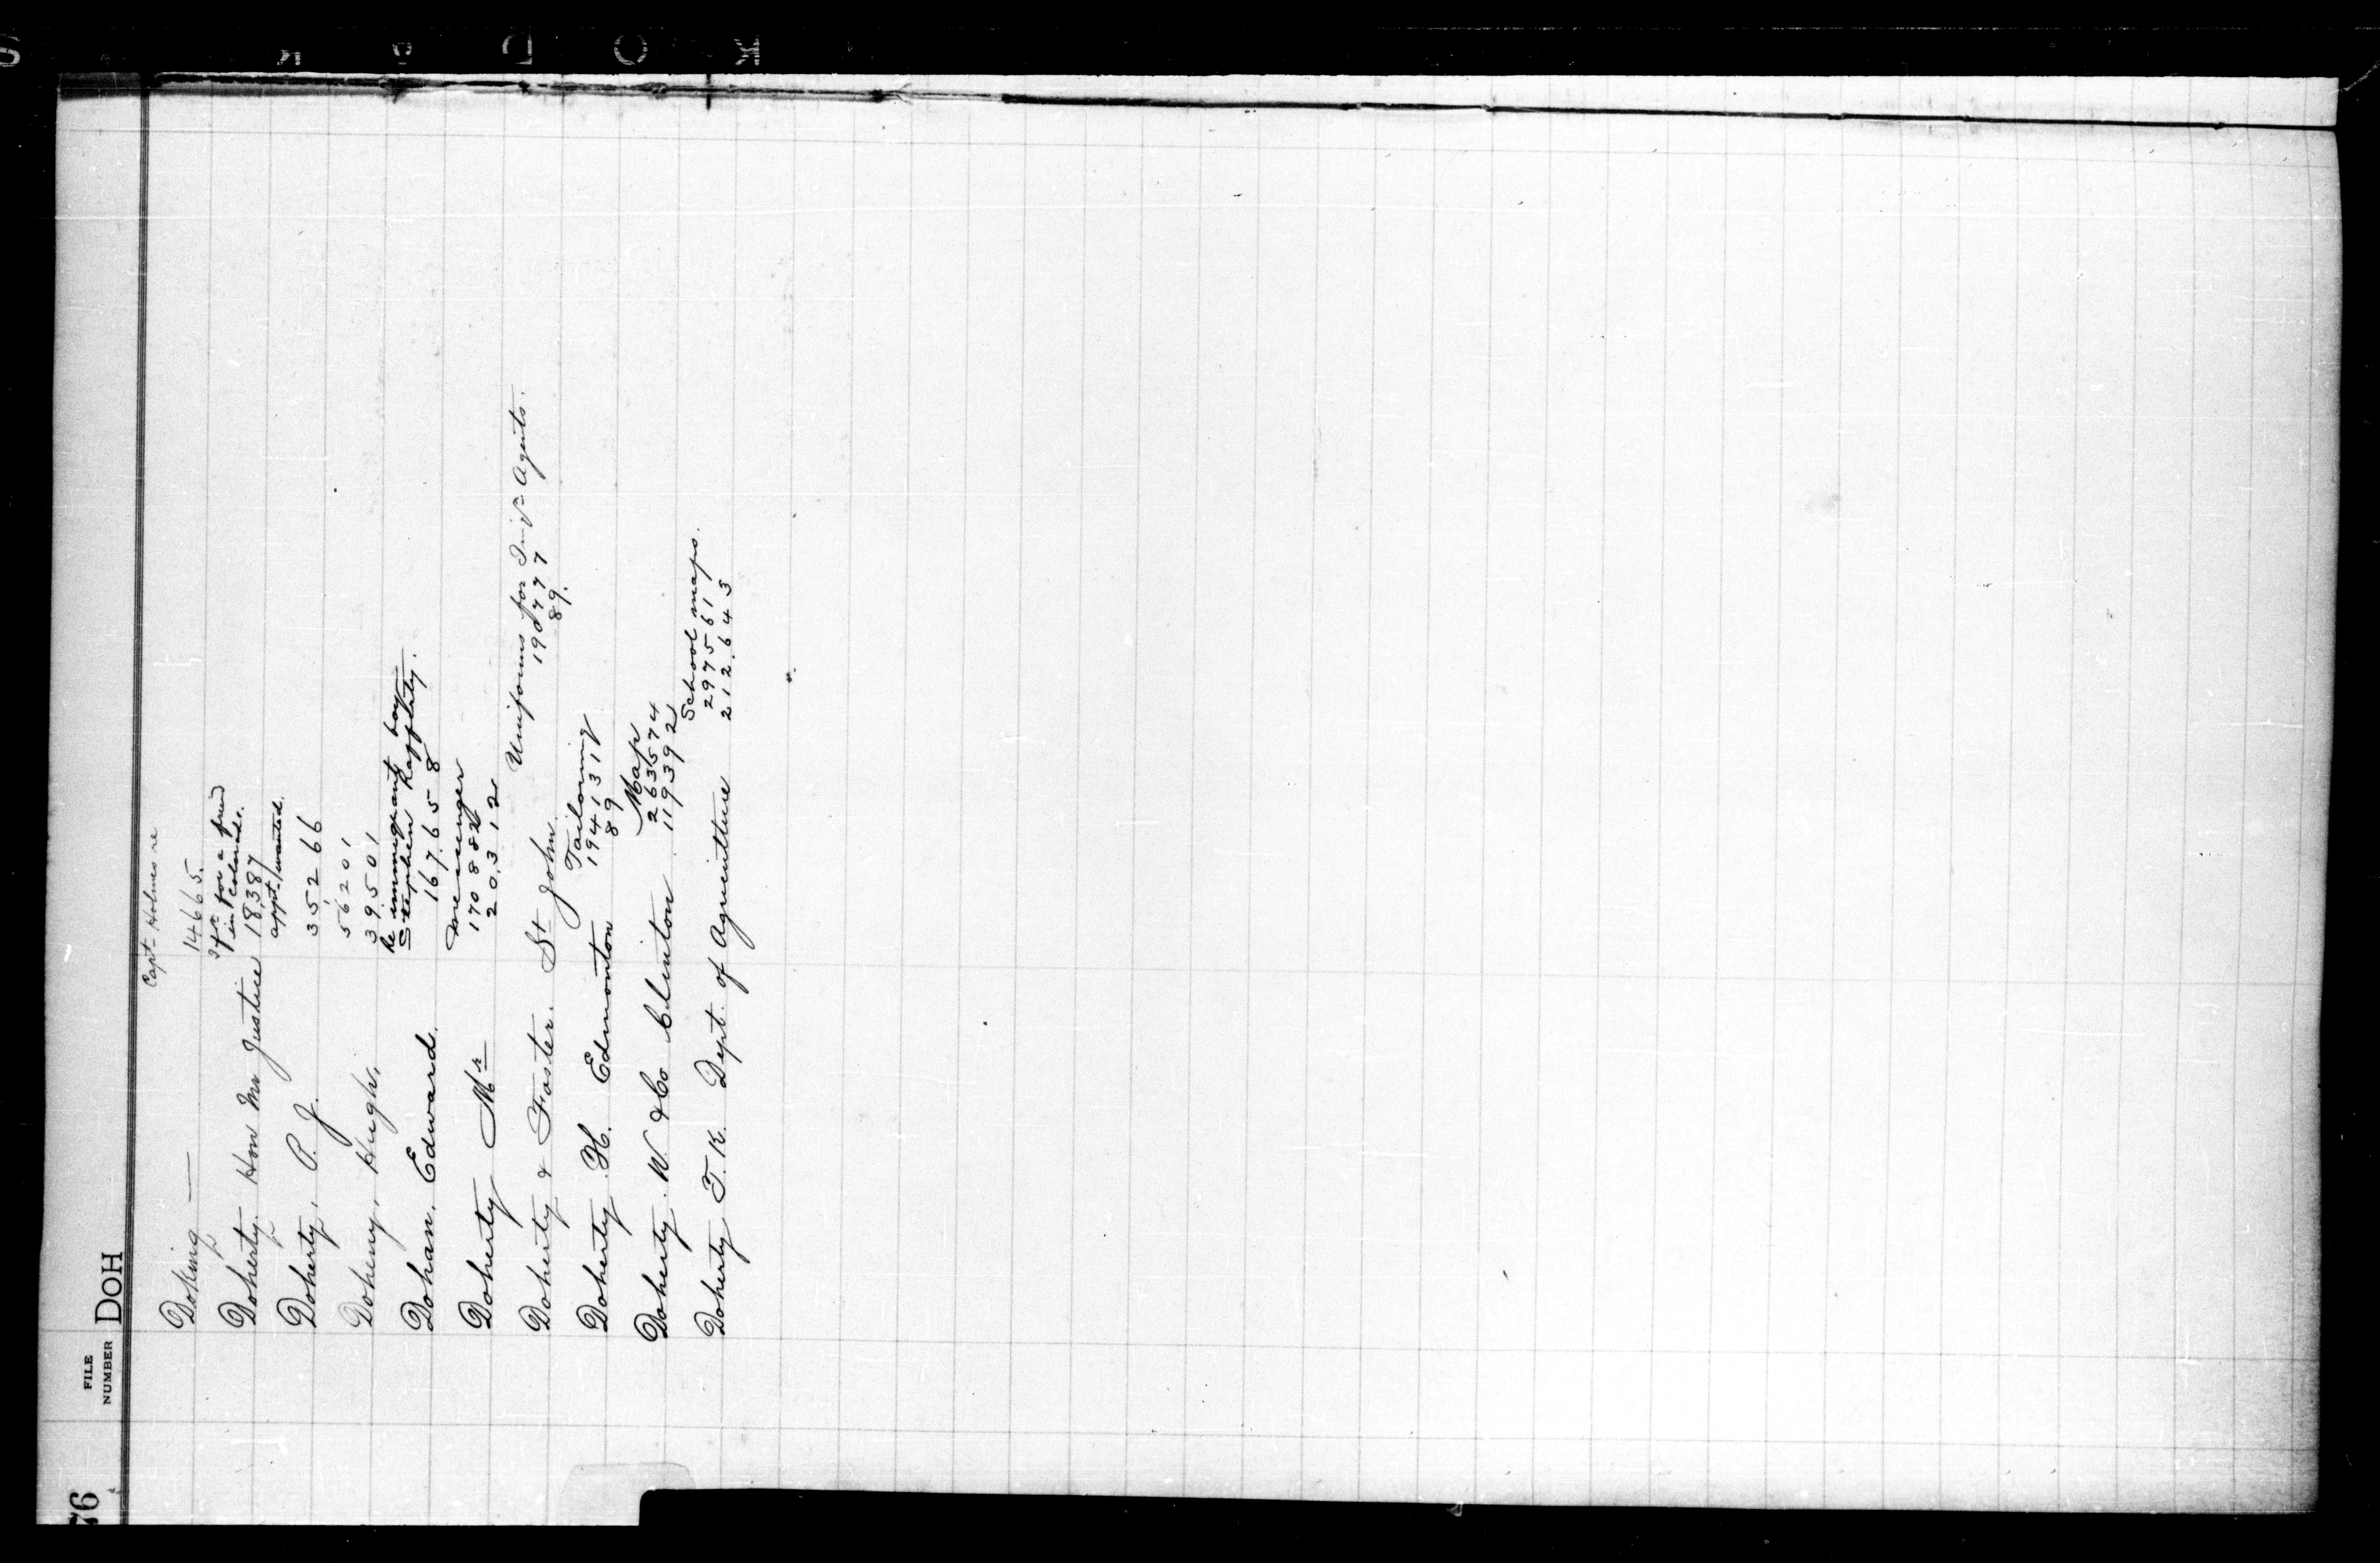 76
FILE
NUMBER
DOH
Capt Holmes re
Doking — 14665.
in Colorado.
Doherty. Hon Mr Justice 18387
appt. wanted.
Doherty, P. J. 35266
56201
Doheny, Hugh, 39501
Re immigrant boy
Stephen Rafferty.
Dohan. Edward. 167658
messenger
170882
Doherty Mr 20312
Uniforms for Agents.
190777
Doherty & Foster. St John. 89.
Tailoring
194131
Doherty H. Edmonton 89
Map
263574
Doherty. W. & Co Clinton 119392
School maps.
297561
Doherty T. K. Dept. of Agriculture 212643
KODAK S